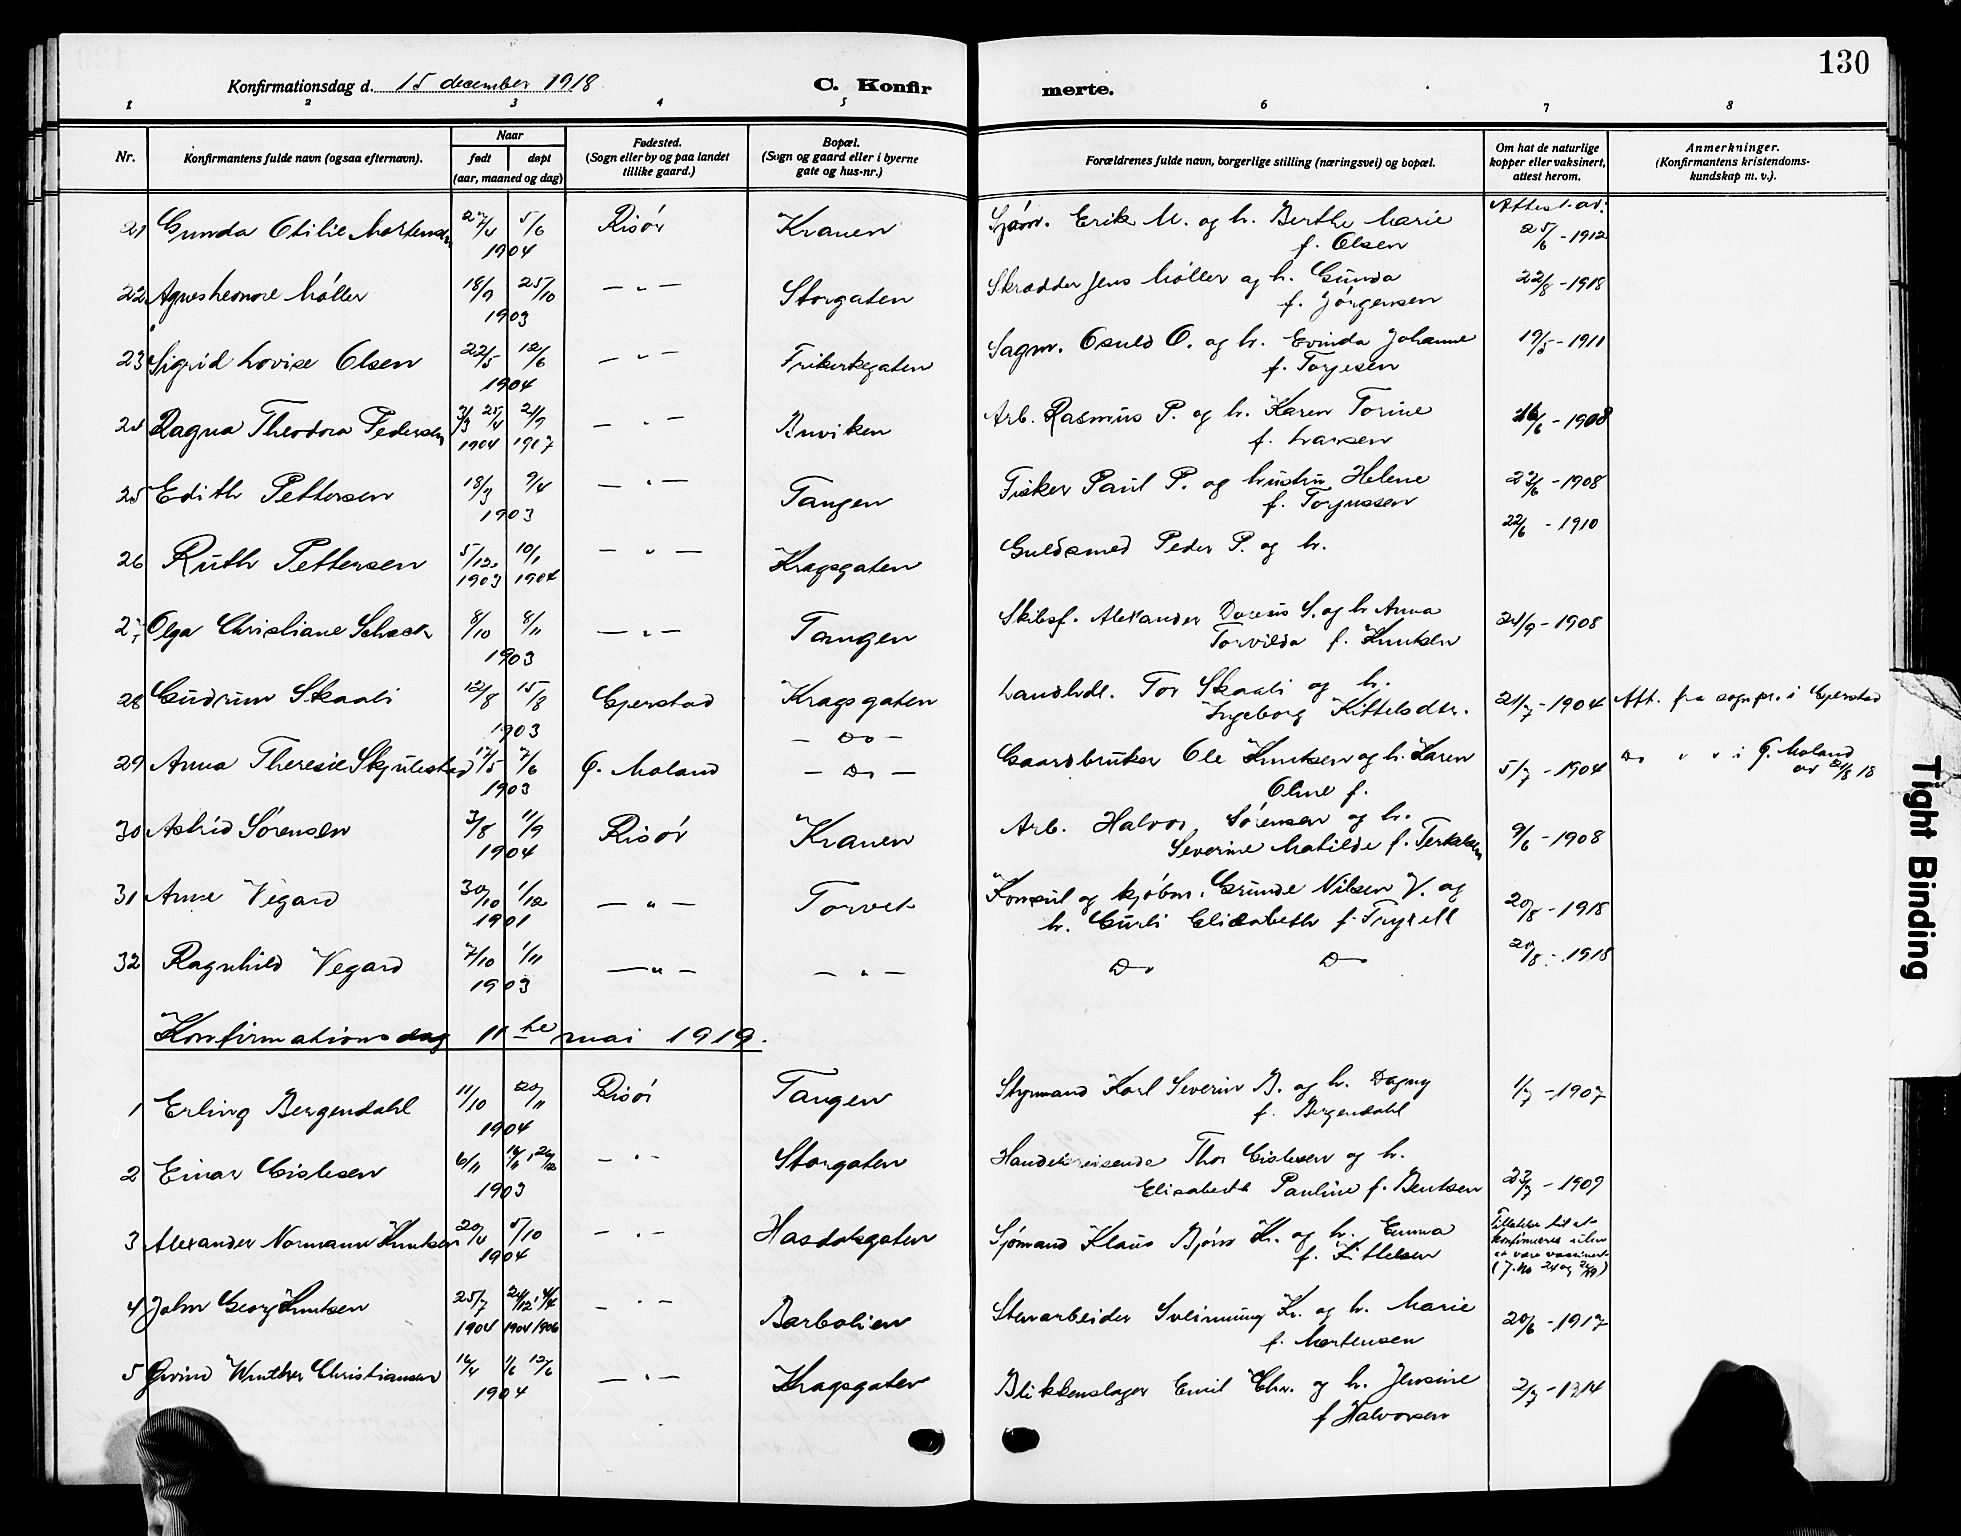 130
Konfirmationsdag d. 15 december 1918
C. Konfirmerte.
1 2 3 4 5 6 7 8
Nr.
Konfirmantens fulde navn (ogsaa efternavn).
Naar
født døpt
(aar, maaned og dag)
Fødested.
(Sogn eller by og paa landet
tillike gaard.)
Bopæl.
(Sogn og gaard eller i byerne
gate og hus-nr.)
Forældrenes fulde navn, borgerlige stilling (næringsvei) og bopæl.
Om hat de naturlige
kopper eller vaksinert,
attest herom.
Anmerkninger.
(Konfirmantens kristendoms-
kundskap m. v.).
21 Gunda Otilie Mortensen 27/4 5/6 1904 Risör Kranen Sjöm. Erik M. og h. Berthe Marie f. Olsen Attest av: 25/6 - 1912
22 Agnes Leonore Möller 18/9 25/10 1903 — " — Storgaten Skrædder Jens Möller og h. Gunda f. Jörgensen 22/8 - 1918
23 Sigrid Lovise Olsen 22/5 12/6 1904 — " — Frikirkegaten Sagm. Osuld O. og h. Evinda Johanne f. Torjesen 19/5 - 1911
24 Ragna Theodora Pedersen 1904 1907 — " — Buviken Arb. Rasmus P. og h. Karen Torine f. Larsen 16/6 - 1908
25 Edith Pettersen 18/3 9/4 1903 — " — Tangen Fisker Paul P. og hustru Helene f. Torjussen 23/6 - 1908
26 Ruth Pettersen 5/12 1903 10/1 1904 — " — Kragsgaten Guldsmed Peder P. og h. 22/6 - 1910
27 Olga Christiane Schack 8/10 8/11 1903 — " — Tangen Skibsf. Alexander S. og h Anna Torvilda f. Knutsen 24/9 - 1908
28 Gudrun Skaali 12/8 15/8 1903 Gjerstad Kragsgaten Landhdl. Tor Skaali og h. Ingeborg Kittelsdtr. 21/7 - 1904 Att. fra sognpr. i Gjerstad
— Do —
29 Anna Theresie Skjulestad 17/5 7/6 1903 Ø. Moland — Do — Gaardbruker Ole Knutsen og h. Karen Oline f. 5/7 - 1904 Do " " i Ø. Moland av 21/8 18
30 Astrid Sörensen 3/8 11/9 1904 Risör Kranen Arb. Halvor Sörensen og h. Severine Matilde f. Terkelsen 9/6 - 1908
31 Anne Vegard 30/10 1/12 1901 — " — Torvet Konsul og kjöbm. Grunde Nilsen V. og h. Gurli Elisabeth f. 20/8 - 1918
32 Ragnhild Vegard 7/10 1/11 1903 — " — — " — Do Do 20/8 - 1918
Konfirmationsdag 11te mai 1919.
1 Erling Bergendahl 11/10 20/11 1904 Risör Tangen Styrmand Karl Severin B. og h. Dagny f. Bergendahl 1/7 - 1907
2 Einar Gislesen 6/11 1903 — " — Storgaten Handelsreisende Thor Gislesen og h. Elisabeth Pauline f. Bentsen 23/7 - 1909
3 Alexander Normann Knutsen 20/4 5/10 1904 — " — Hasdalsgaten Sjömand Klaus Björn K. og h. Emma f. Kittelsen Tillatelse til at konfirmeres uten at være vaccinert (J. No 24 og
4 John Georg Knutsen 25/7 1904 24/12 1904 4/4 1906 — " — Barbolien Stenarbeider Sveinung K. og h. Marie f. Mortensen 20/6 - 1917
5 Øivind Winther Christiansen 16/4 1/6 12/6 1904 — " — Kragsgaten Blikkenslager Emil Chr. og h. Jensine f Halvorsen 2/7 - 1914
Tight Binding